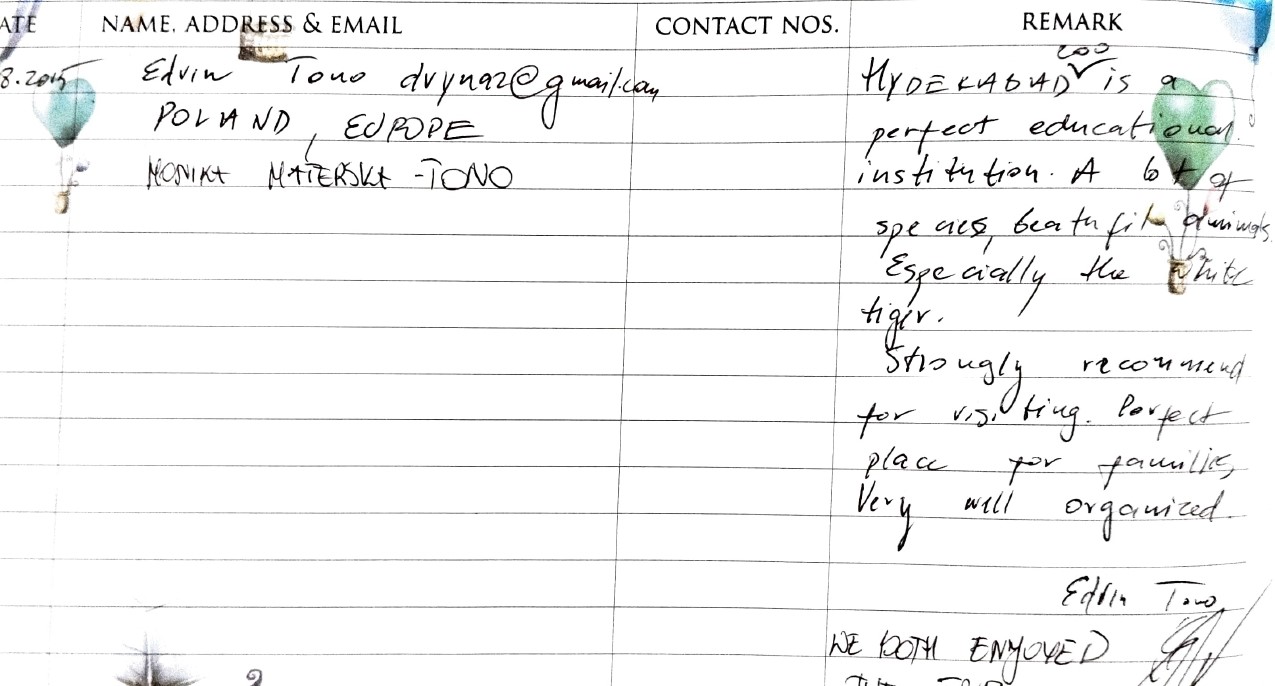 ATE NAME, ADDRESS & EMAIL CONTACT NOS. REMARK
8.2015 Edvin Tono dvynaz@gmail.com
POLAND, EUROPE
MONIKA MATERSKA-TONO
HYDERABAD ZOO is a
perfect educational
institution. A lot of
species, beatufil animals.
Especially the white
tiger.
Strongly recommend
for visiting. Perfect
place for families,
Very well organized.
Edvin Tono
WE BOTH ENJOYED